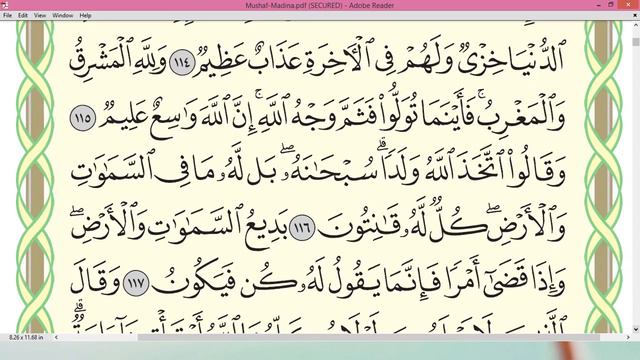 Mushaf-Madina.pdf (SECURED) - Adobe Reader
File Edit View Window Help
ٱلدُّنۡيَا خِزۡيٞ وَلَهُمۡ فِي ٱلۡأٓخِرَةِ عَذَابٌ عَظِيمٞ ١١٤ وَلِلَّهِ ٱلۡمَشۡرِقُ
وَٱلۡمَغۡرِبُۚ فَأَيۡنَمَا تُوَلُّواْ فَثَمَّ وَجۡهُ ٱللَّهِۚ إِنَّ ٱللَّهَ وَٰسِعٌ عَلِيمٞ ١١٥
وَقَالُواْ ٱتَّخَذَ ٱللَّهُ وَلَدٗاۗ سُبۡحَٰنَهُۥۖ بَل لَّهُۥ مَا فِي ٱلسَّمَٰوَٰتِ
وَٱلۡأَرۡضِۖ كُلّٞ لَّهُۥ قَٰنِتُونَ ١١٦ بَدِيعُ ٱلسَّمَٰوَٰتِ وَٱلۡأَرۡضِۖ
وَإِذَا قَضَىٰٓ أَمۡرٗا فَإِنَّمَا يَقُولُ لَهُۥ كُن فَيَكُونُ ١١٧ وَقَالَ
8.26 x 11.68 in